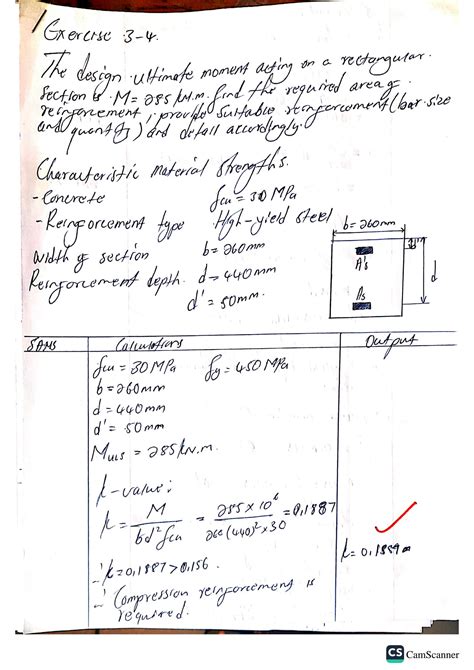 Exercise 3-4.
The design ultimate moment acting on a rectangular
section is M = 285 kN.m. find the required area of
reinforcement, provide suitable reinforcement (bar size
and quantity) and detail accordingly.
Characteristic material strengths.
- Concrete fcu = 30 MPa
- Reinforcement type High-yield steel
width of section b = 260mm
Reinforcement depth. d = 440mm
d' = 50mm.
b = 260mm
A's
d
As
SANS Calculations Output
fcu = 30MPa fy = 450MPa
b = 260mm
d = 440mm
d' = 50mm
MULS = 285kN.m.
k-value:
k = M / bd²fcu = 285 x 10⁶ / 260(440)² x 30 = 0,1887
∴ k = 0,1887 > 0,156.
∴ Compression reinforcement is
required.
CS CamScanner